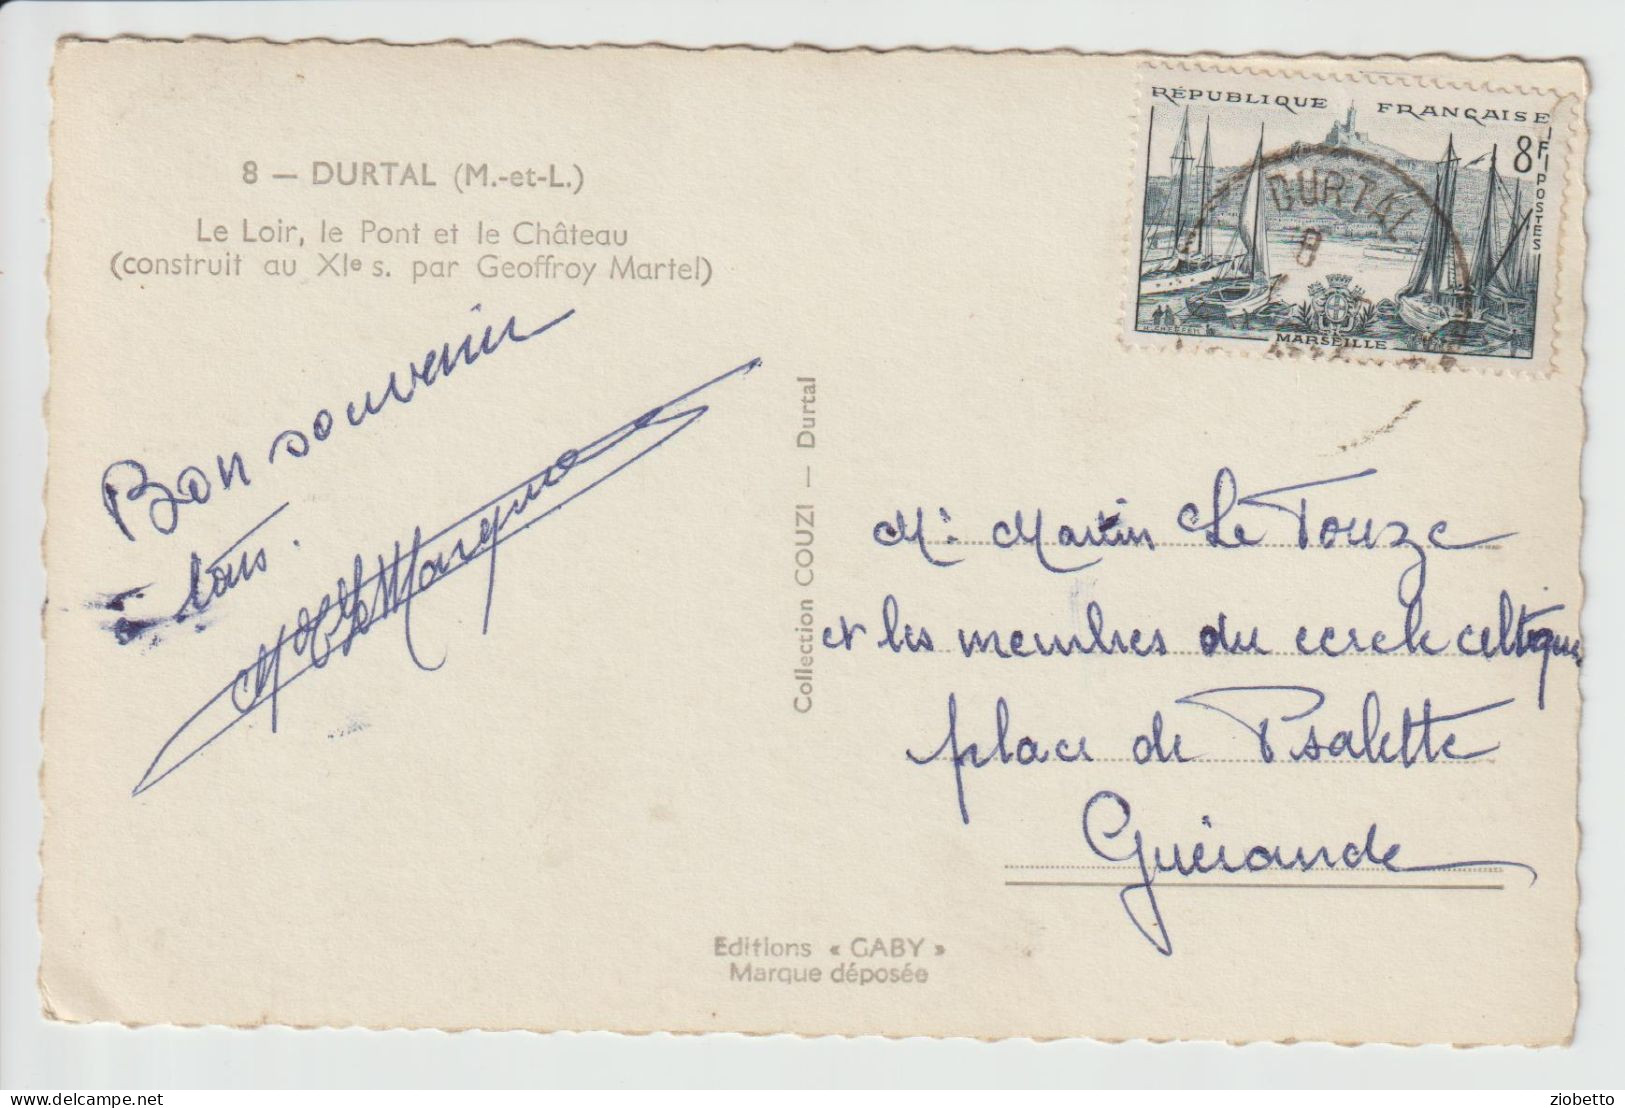 8 — DURTAL (M.-et-L.)
Le Loir, le Pont et le Château
(construit au XIe s. par Geoffroy Martel)
Bon souvenir
à tous.
Collection COUZI — Durtal
Editions « GABY »
Marque déposée
RÉPUBLIQUE FRANÇAISE
8F
POSTES
MARSEILLE
DURTAL
8
Mr Martin Le Touze
et les membres du cercle celtique
place de Psalette
Guérande
delcampe.net
ziobetto